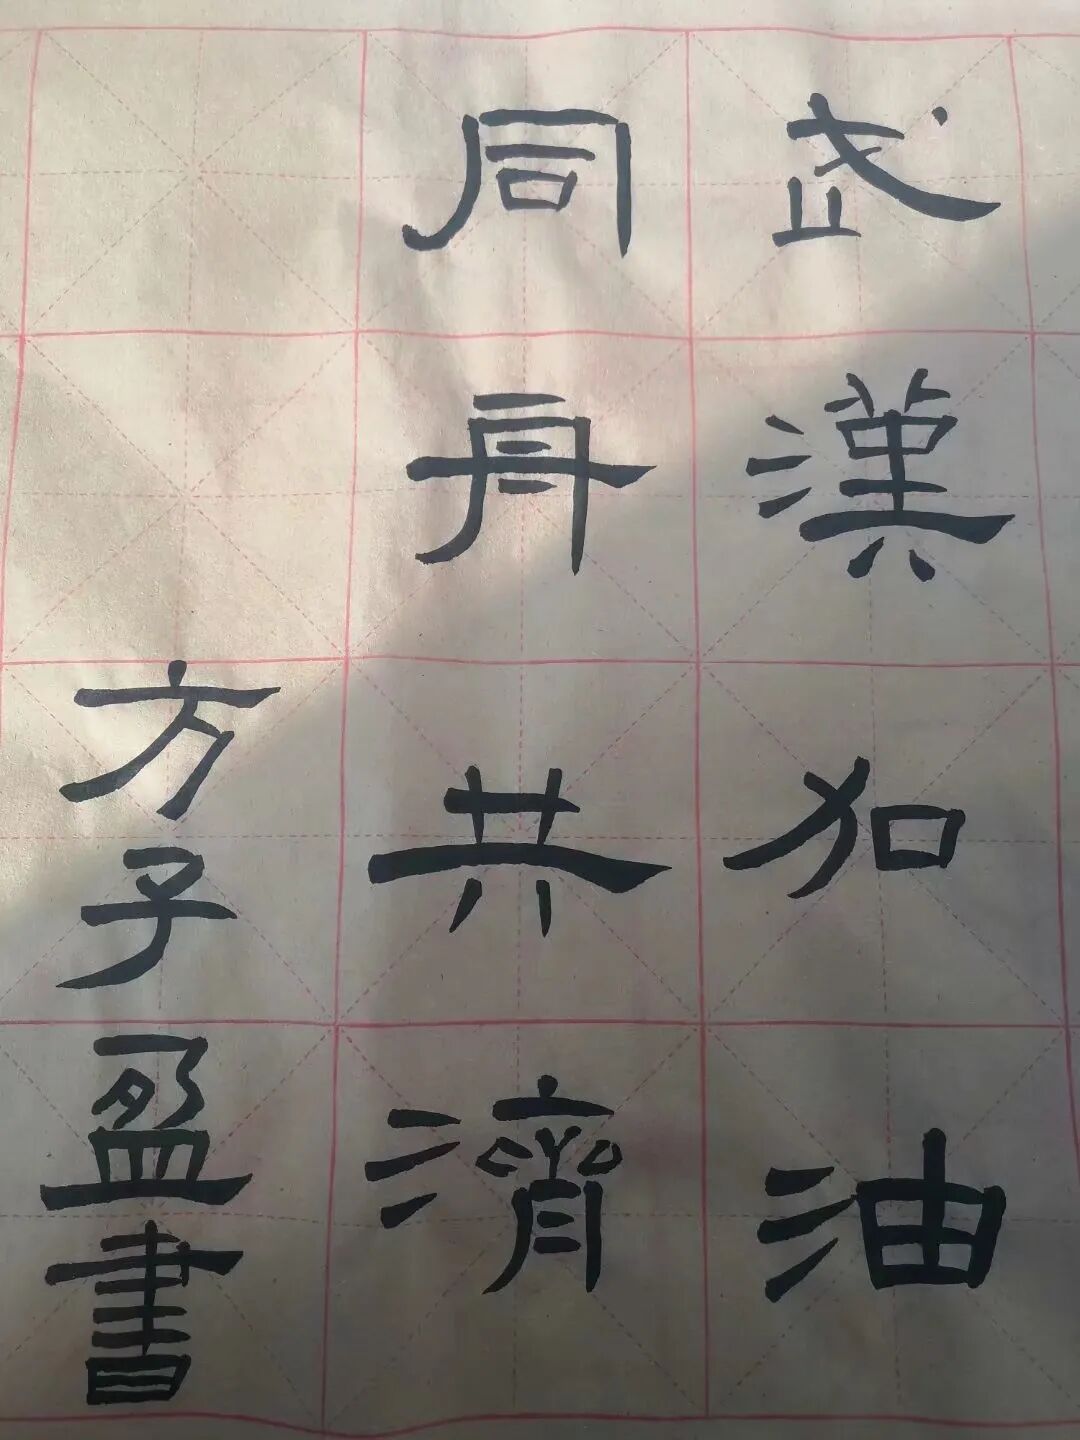 武漢加油
同舟共濟
方子盈書